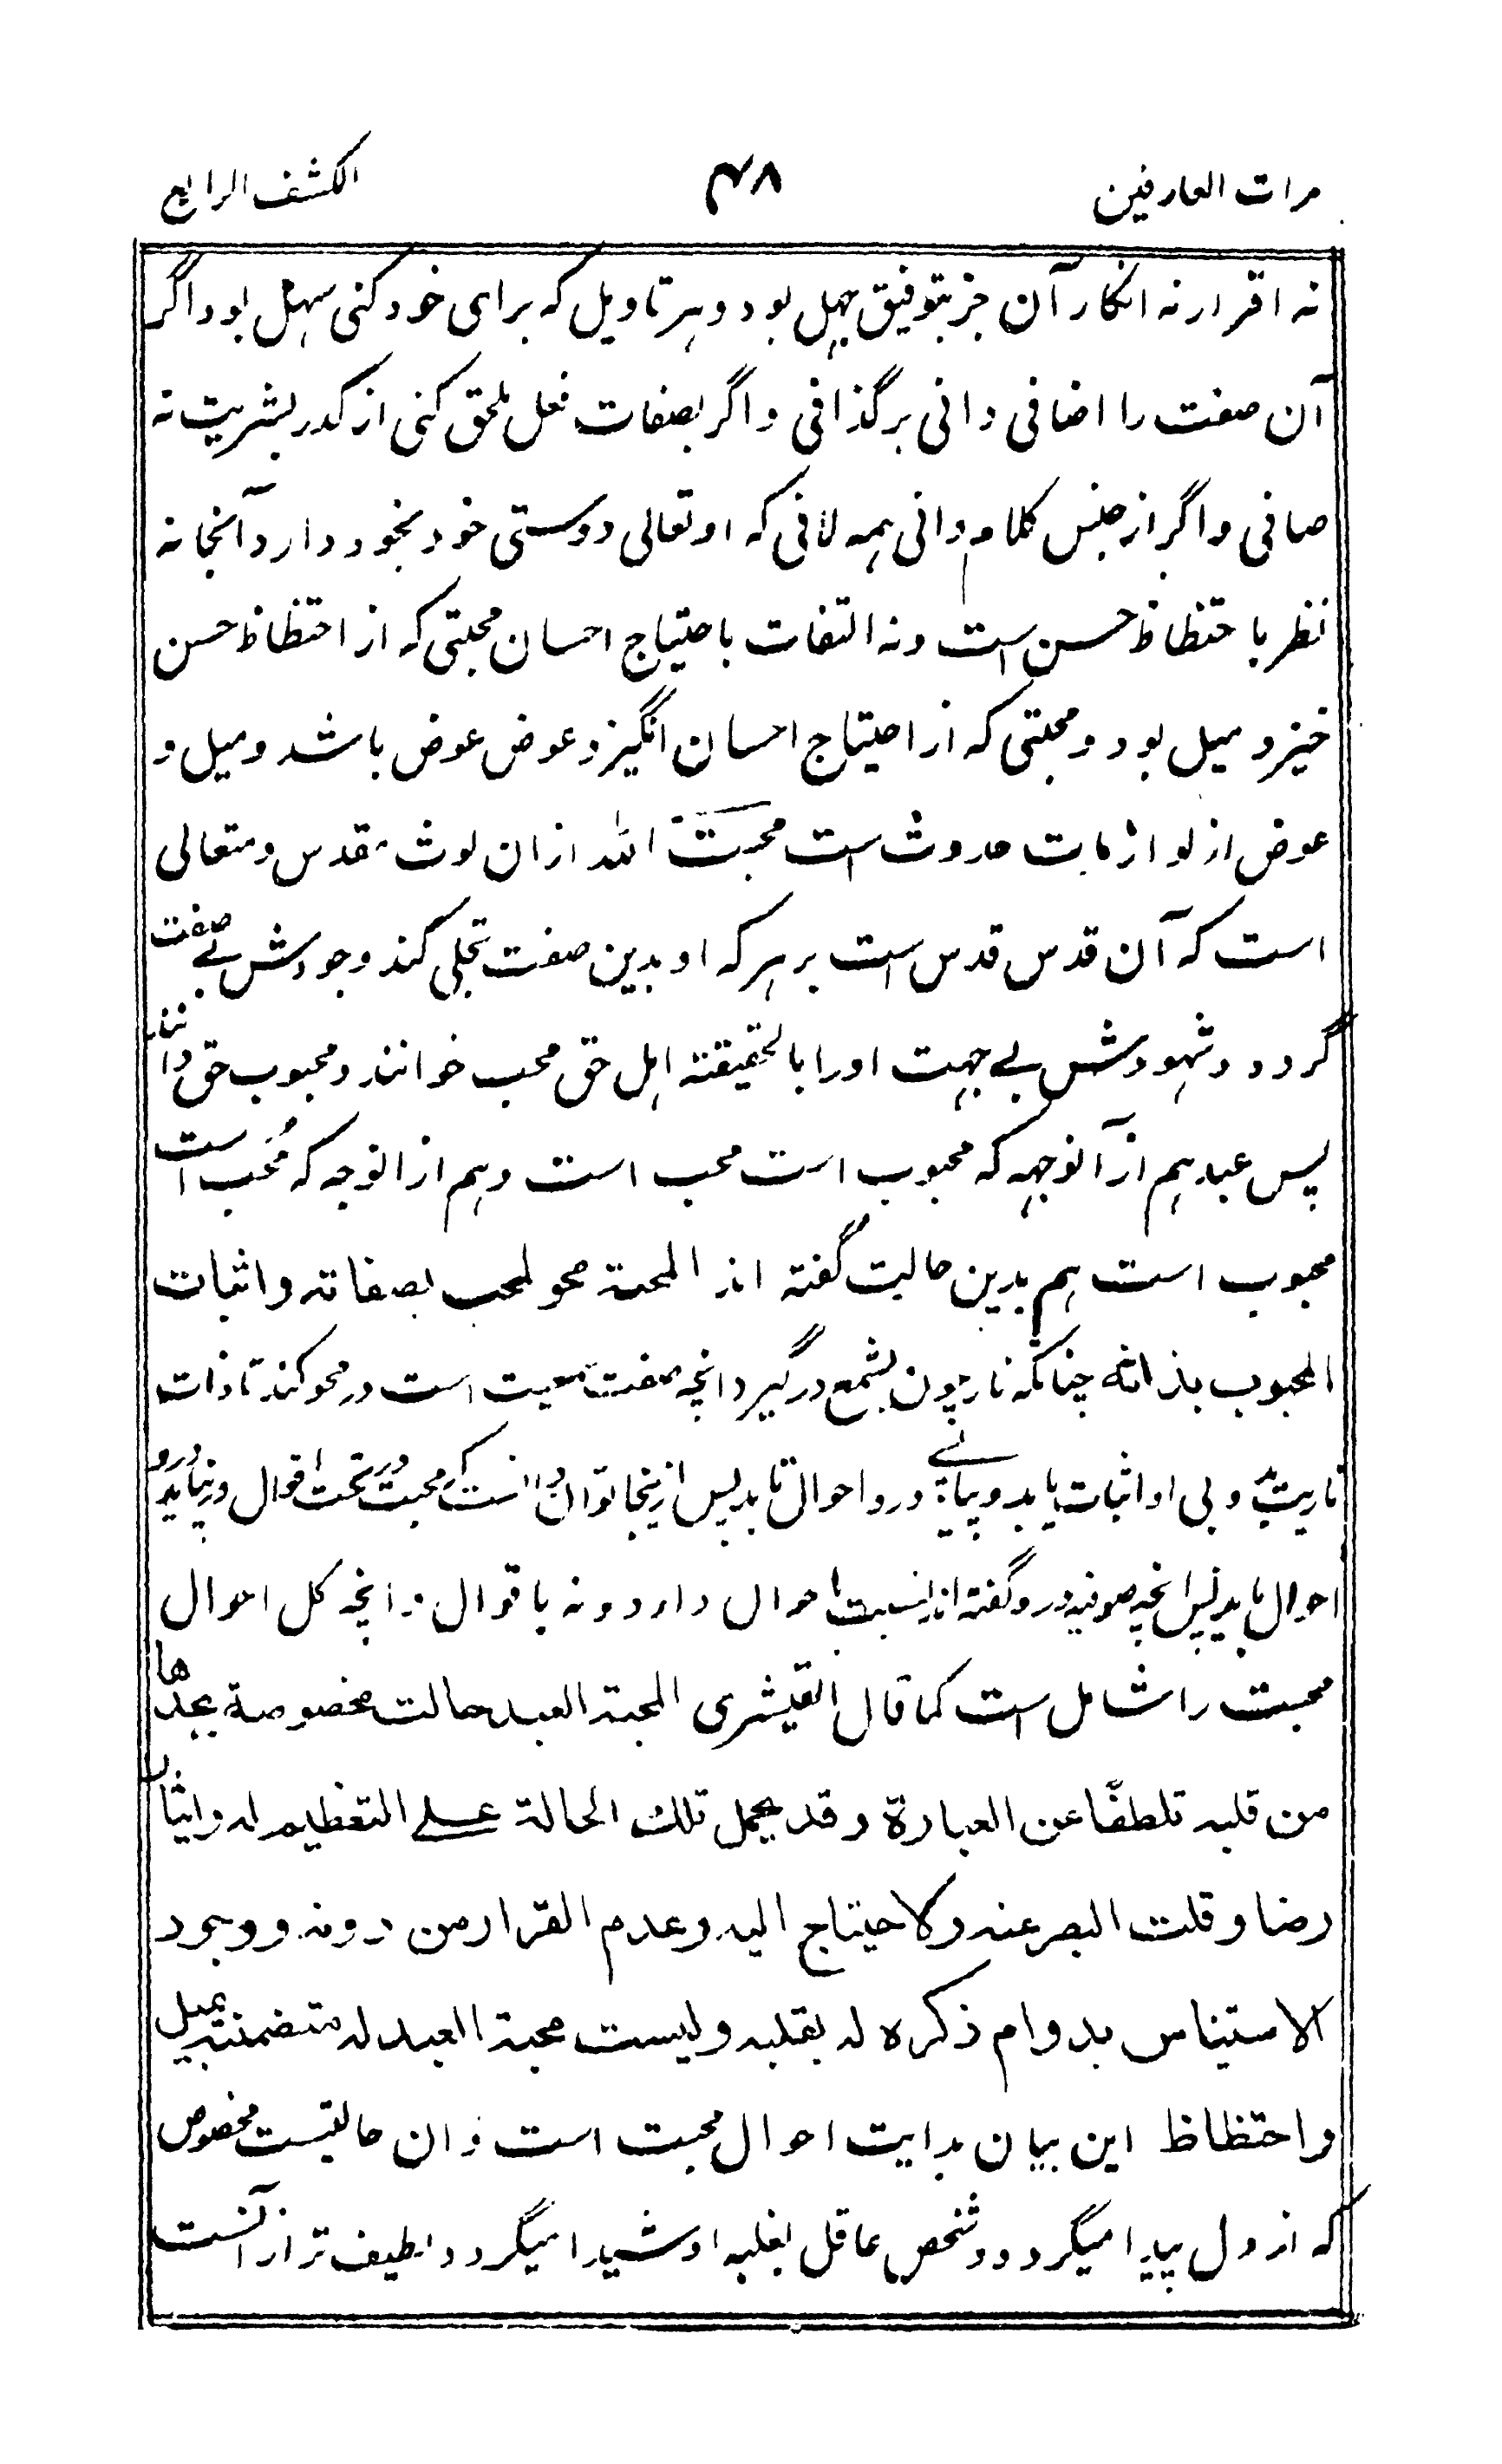 مرات العارفین ۴۸ الکشف الرابع
نه اقرار نه انکار آن جز بتوفیق جهل بود و هر تاویل که برای خود کنی سهل بود اگر
آن صفت را اضافی دانی بر گذافی و اگر بصفات فعل ملحق کنی از کدر بشریت نه
صافی و اگر از جنس کلام دانی همه لافی که او تعالی دوستی خود بخود دارد آنجا نه
نظر با حتظاظ حسن است و نه التفات باحتیاج احسان محبتی که از احتظاظ حسن
خیزد میل بود و محبتی که از احتیاج احسان انگیزد عوض عوض باشد و میل و
عوض از لوازمات حدوث است محبت الله ازان لوث مقدس و متعالی
است که آن قدس قدس است بر هر که او بدین صفت تجلی کند وجودش بے صفت
گردد و شهودش بے جهت او را بالحقیقته اهل حق محب خوانند و محبوب حق دانند
پس عبد هم از آنوجهه که محبوب است محب است و هم از انوجه که مُحب است
محبوب است هم بدین حالت گفته اند المحبة محو المحب بصفاته و اثبات
المحبوب بذاته چنانکه نار چون بشمع در گیرد انچه صفت معیت است در محو کند تا ذات
ناریت و بی او اثبات یابد و پیانے درو احوال تابد پس ازینجا توان دانست که محبت در تحت اقوال در نیاید و درو
احوال تابد پس انچه صوفیه درو گفته اند نسبت با حوال دارد و نه با قوال و انچه کل احوال
محبت را شامل است کما قال القیشری المحبة العبد حالت مخصوصة یجدها
من قلبه تلطفًا عن العبارة وقد یحمل تلك الحالة علے التعظیم له وایثار
رضا و قلت البصر عنه و الاحتیاج الیه و عدم القرار من دونه و وجود
الاستیناس بدوام ذکره له بقلبه ولیست محبة العبد له متضمنته بمیل
و احتظاظ این بیان بدایت احوال محبت است و ان حالتیست مخصوص
که از دل پیدا میگردد و شخص عاقل بغلبه او شیدا میگردد و لطیف تر از آنست